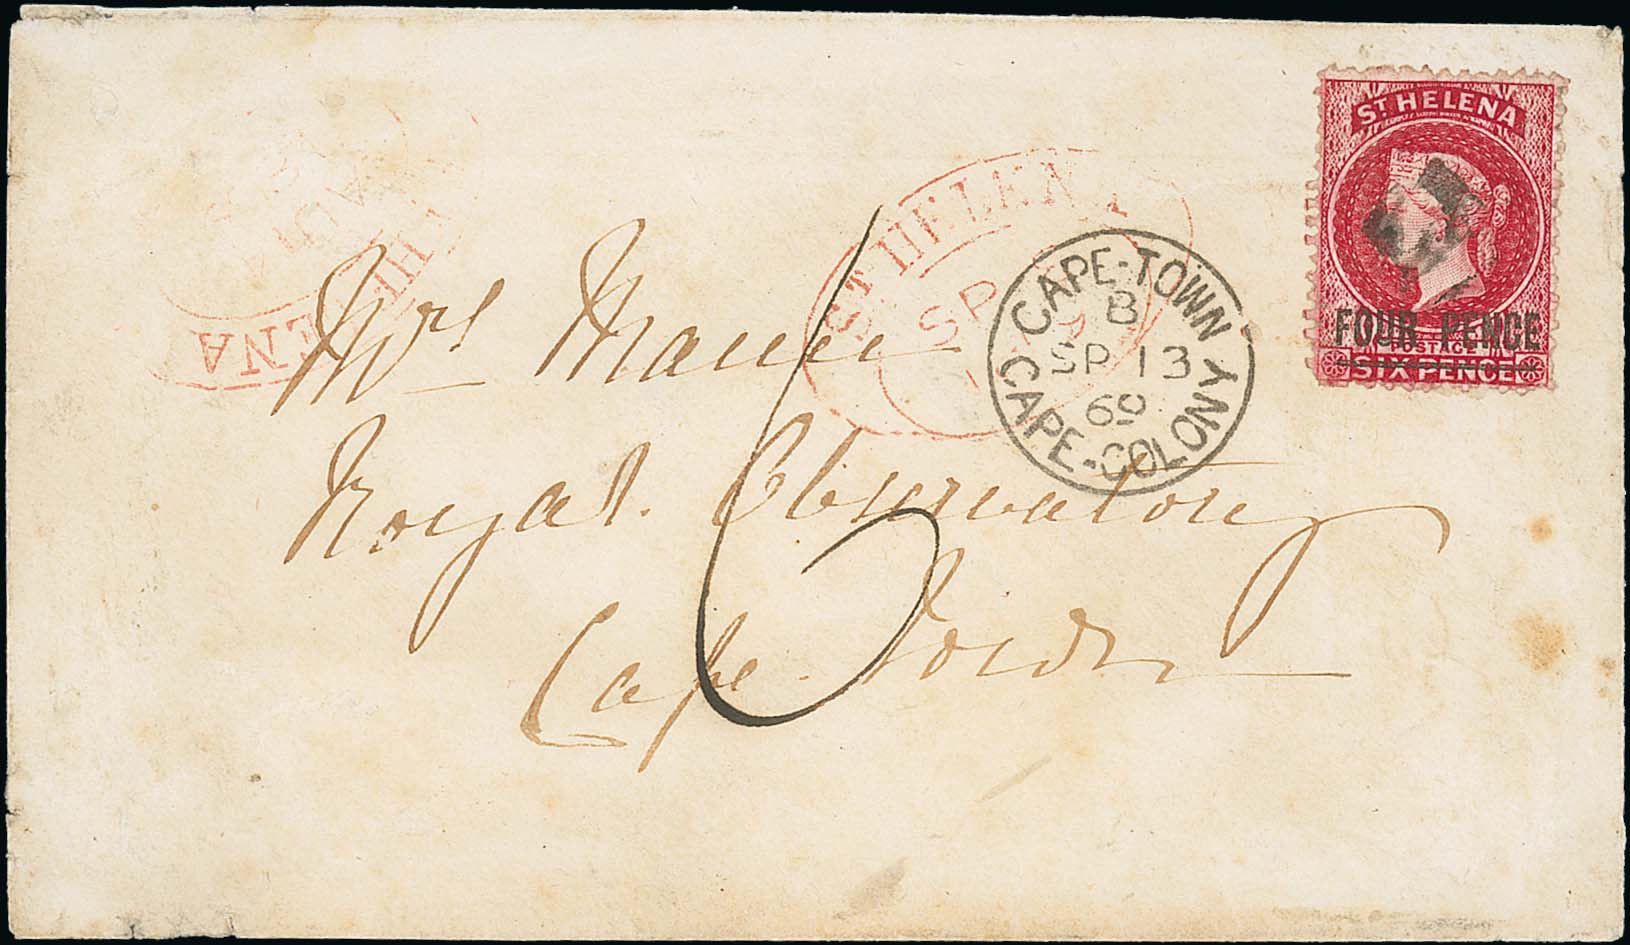 ST HELENA
FOUR PENCE
POSTAGE
SIX PENCE
ST HELENA
SP
CAPE-TOWN
B
SP 13
69
CAPE-COLONY
HELENA
AU
Mrs Mann
Royal Observatory
Cape Town
6